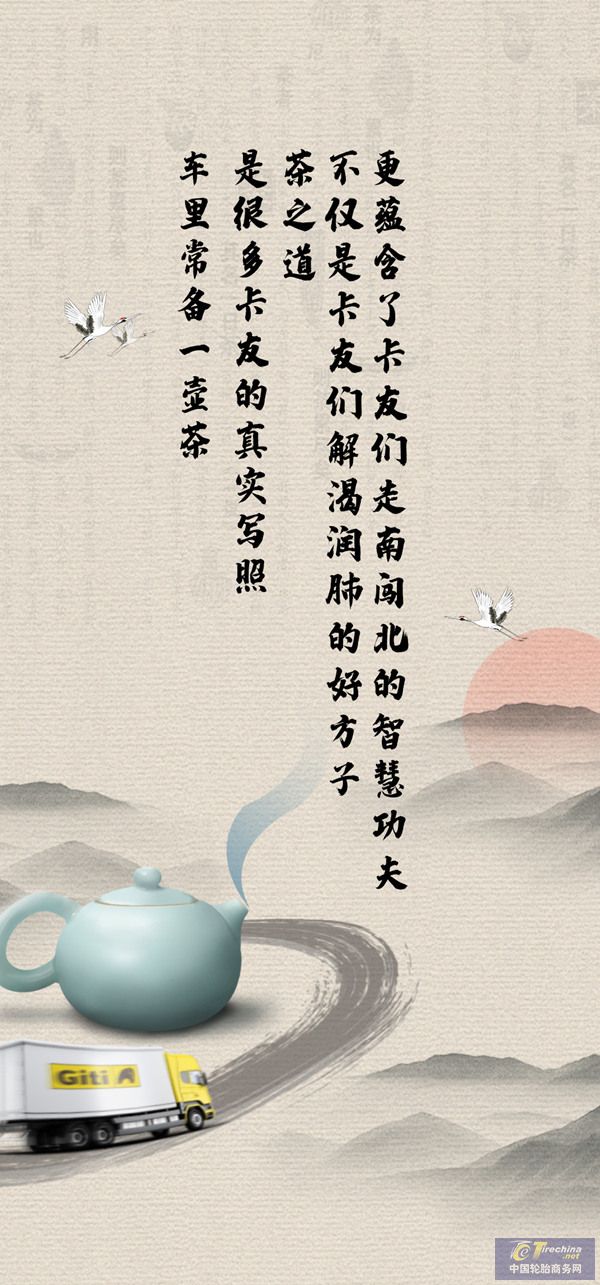 车里常备一壶茶
是很多卡友的真实写照
茶之道
不仅是卡友们解渴润肺的好方子
更蕴含了卡友们走南闯北的智慧功夫
Giti
Tirechina
.net
中国轮胎商务网